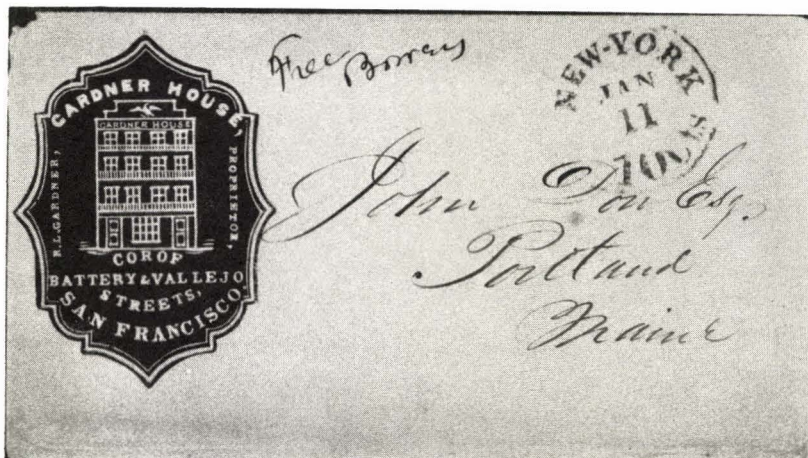 GARDNER HOUSE,
GARDNER HOUSE
R.L. GARDNER,
PROPRIETOR,
COR OF
BATTERY & VALLEJO
STREETS,
SAN FRANCISCO.
Free
NEW-YORK
JAN
11
John Esq.
Portland
Maine